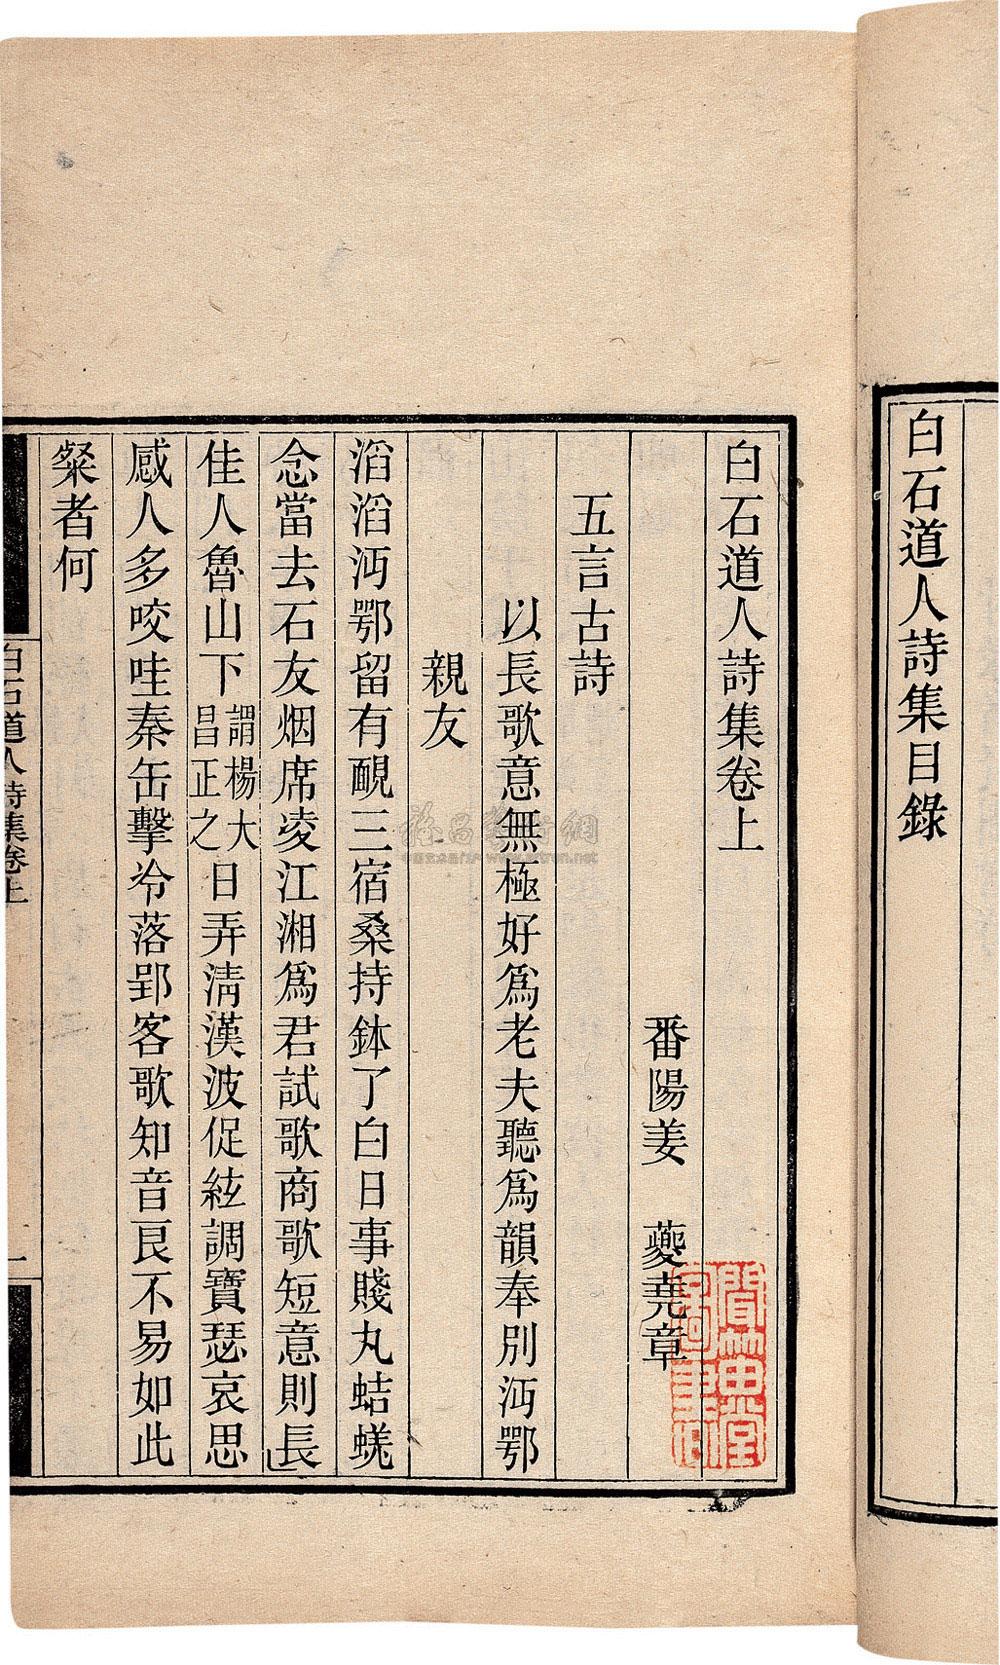 白石道人詩集目錄
白石道人詩集卷上
番陽姜　夔堯章
五言古詩
以長歌意無極好爲老夫聽爲韻奉別沔鄂
親友
滔滔沔鄂留有靦三宿桑持鉢了白日事賤丸蛣蜣
念當去石友烟席凌江湘爲君試歌商歌短意則長
佳人魯山下謂楊大昌正之日弄清漢波促絃調寶瑟哀思
感人多咬哇秦缶擊冷落郢客歌知音良不易如此
粲者何
白石道人詩集卷上
一